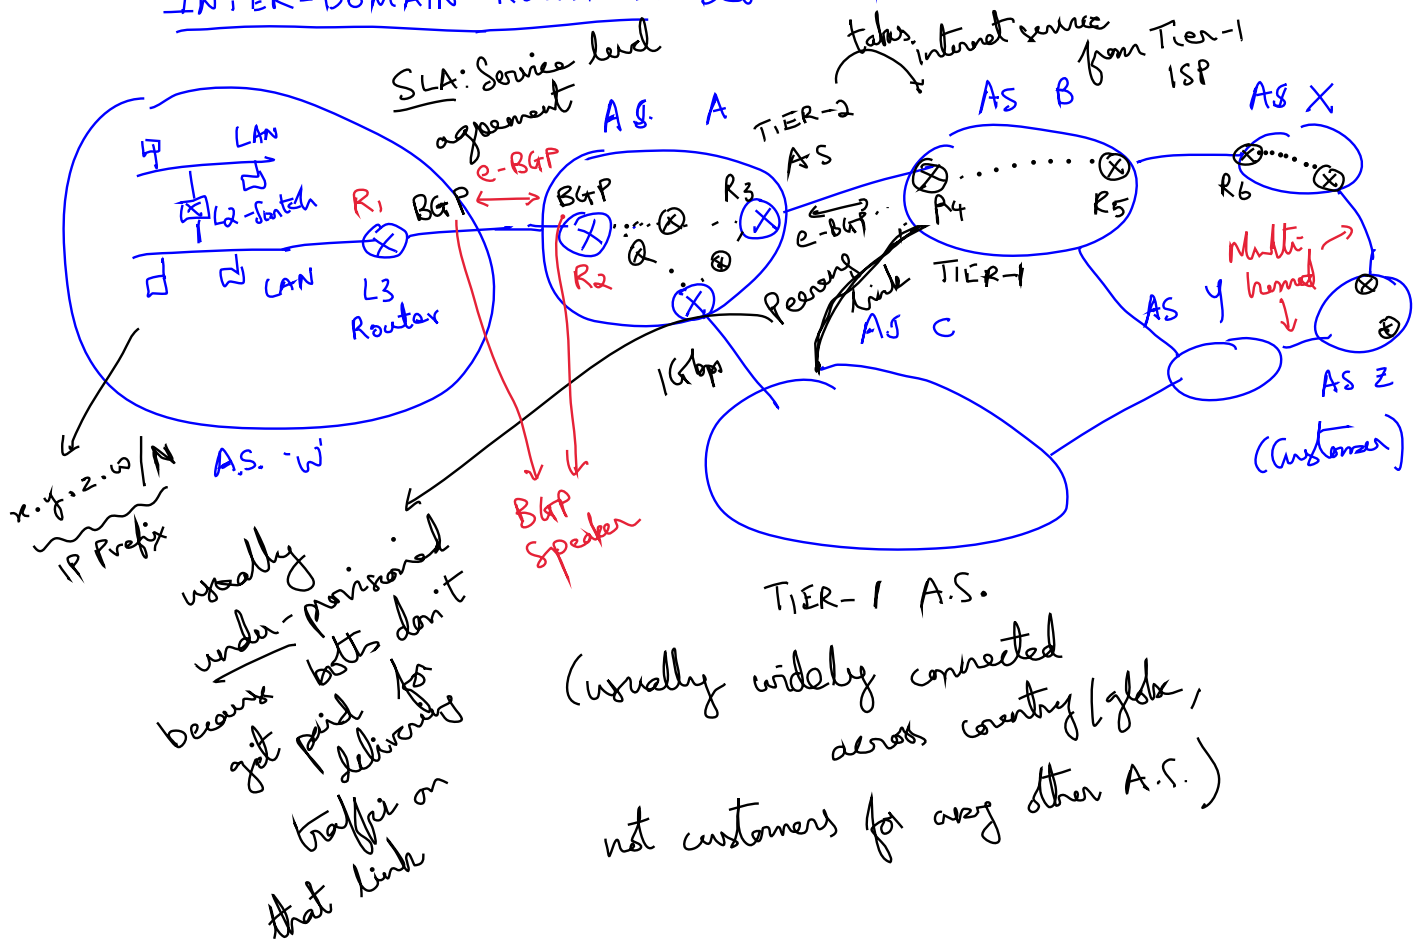 INTER-DOMAIN
SLA: Service level
agreement
takes internet service
from Tier-1
ISP
A.S. A
TIER-2
AS
AS B
AS X
LAN
L2-Switch
LAN
R1
BGP
e-BGP
BGP
R2
R3
e-BGP
R4
R5
R6
L3
Router
Peering
link
TIER-1
AS C
AS Y
Multi
homed
AS Z
(Customer)
1Gbps
A.S. W
x.y.z.w/N
IP Prefix
BGP
Speaker
usually
under-provisioned
because both don't
get paid for
delivering
traffic on
that link
TIER-1 A.S.
(usually widely connected
across country/globe,
not customers for any other A.S.)